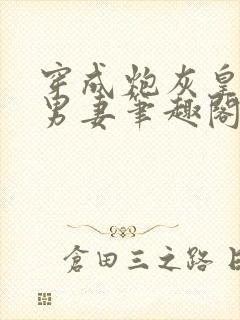 穿成炮灰皇
男妻筆趣閣
倉田三之路 日